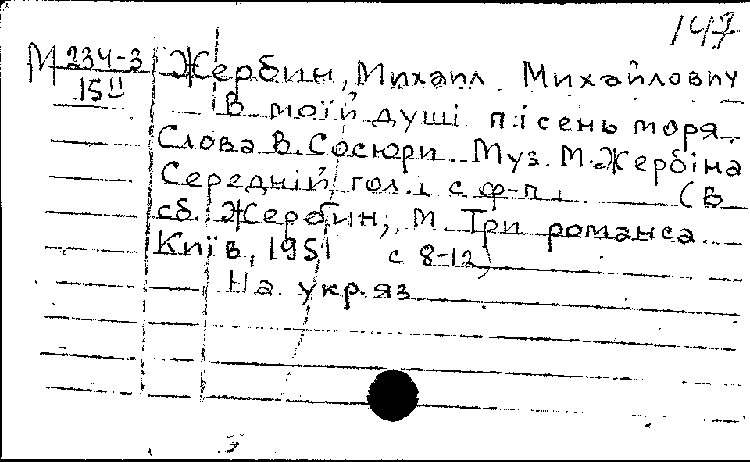 147
М 234-3 Жербин, Михаил Михайлович
15 II В моїй душі пісень моря.
Слова В. Сосюри. Муз. М. Жербіна
Середній гол. і с ф-п. (В
сб. Жербин, М. Три романса
Київ, 1951 с 8-12)
На укр. яз